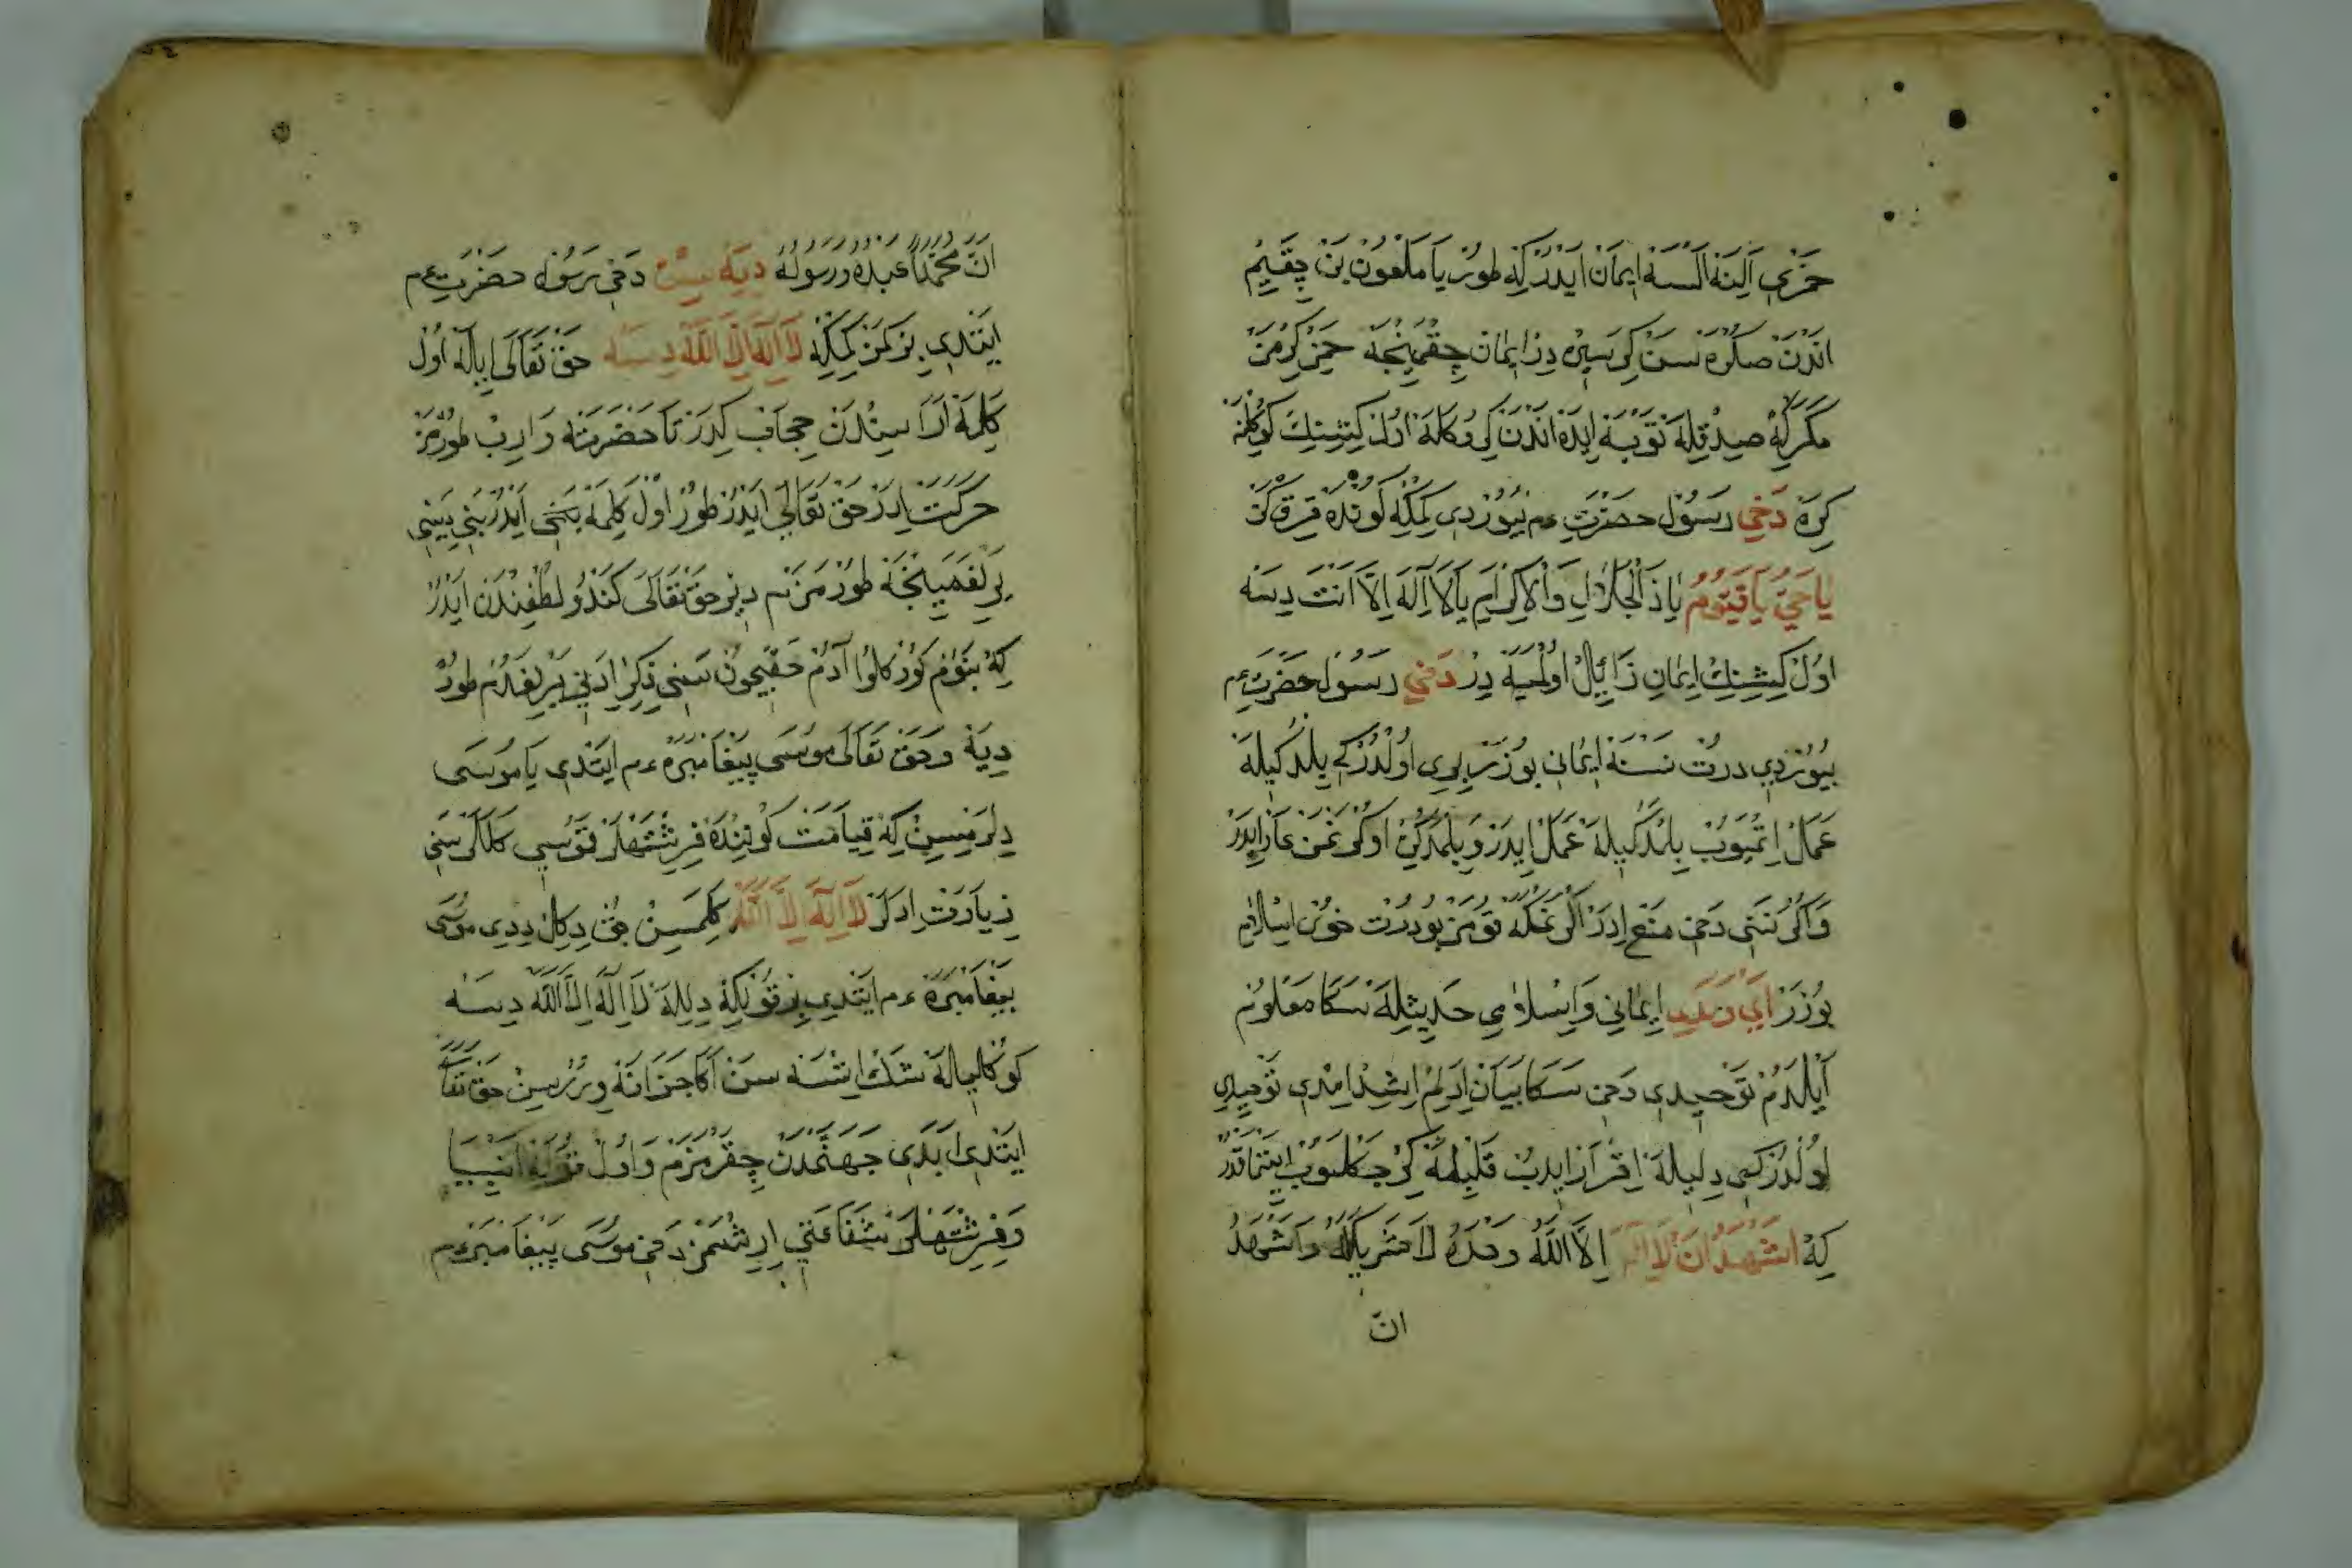 خمری الینه السه ایمان ایدر که طور یا ملعون بن چقیم
اندن صکره سن کی سیره در ایمان چقمینجه خمر کرمز
مکر که صدقله توبه ایده اندن کی و کلمه اول کشینك کوکلنه
کره دخی رسول حضرت عم بیوردی کمکه کونده قرق کز
یا حی یا قیوم یا ذالجلال والاکرام یا لا اله الا انت دیسه
اول کشینك ایمان زائل اولمیه در دخی رسول حضرت عم
بیوردی درت نسنه ایمانی بوزر بری اولدر کی بلدکیله
عمل اتمیوب بلمدکیله عمل ایدر و بلمدکین اوکرنمکدن عار ایدر
و اکرننی دخی منع ادر اکرنمکه قومز بو درت خوی اسلام
بوزر ای ایمانی و اسلامی حدیثله سکا معلوم
ایلدم توحیدی دخی سکا بیان ادلم اشد امدی توحیدی
اولدر کی دلیله اقرار ایدب قلبله کرچکلیوب
که اشهد ان لا اله الا الله وحده لا شریك له واشهد
ان
ان محمدا عبده ورسوله دیه سن دخی رسول حضرت عم
ایتدی هر کمن کمکه لا اله الا الله دیسه حق تعالی ایله اول
کلمه اراسیندن حجاب کدر تا حضرته وارب طورمز
حرکت ادر حق تعالی ایدر طور اول کلمه ایدر بنی دینی
یرلغمینجه طورمزنم دیر حق تعالی کندو لطفندن ایدر
که بنوم کوزکلوا آدم حقیچون سنی ذکر ادنی یرلغدم طور
دیه و حق تعالی موسی پیغامبره عم ایتدی یا موسی
دلرمیسین که قیامت کوننده فرشتهلر قوسی کلالر سنی
زیارت ادلر لا اله الا الله کلمسین چق دکل ددی موسی
پیغامبره عم ایتدی بر قولکه دلیله لا اله الا الله دیسه
کوکالیله شك اتسه سن اکا جزا نه وررسین حق تعا
ایتدی ابدی جهنمدن چقرمزم و اول قوله انبیا
و فرشتهلر شفاعتی ارشمز دخی موسی پیغامبر عم